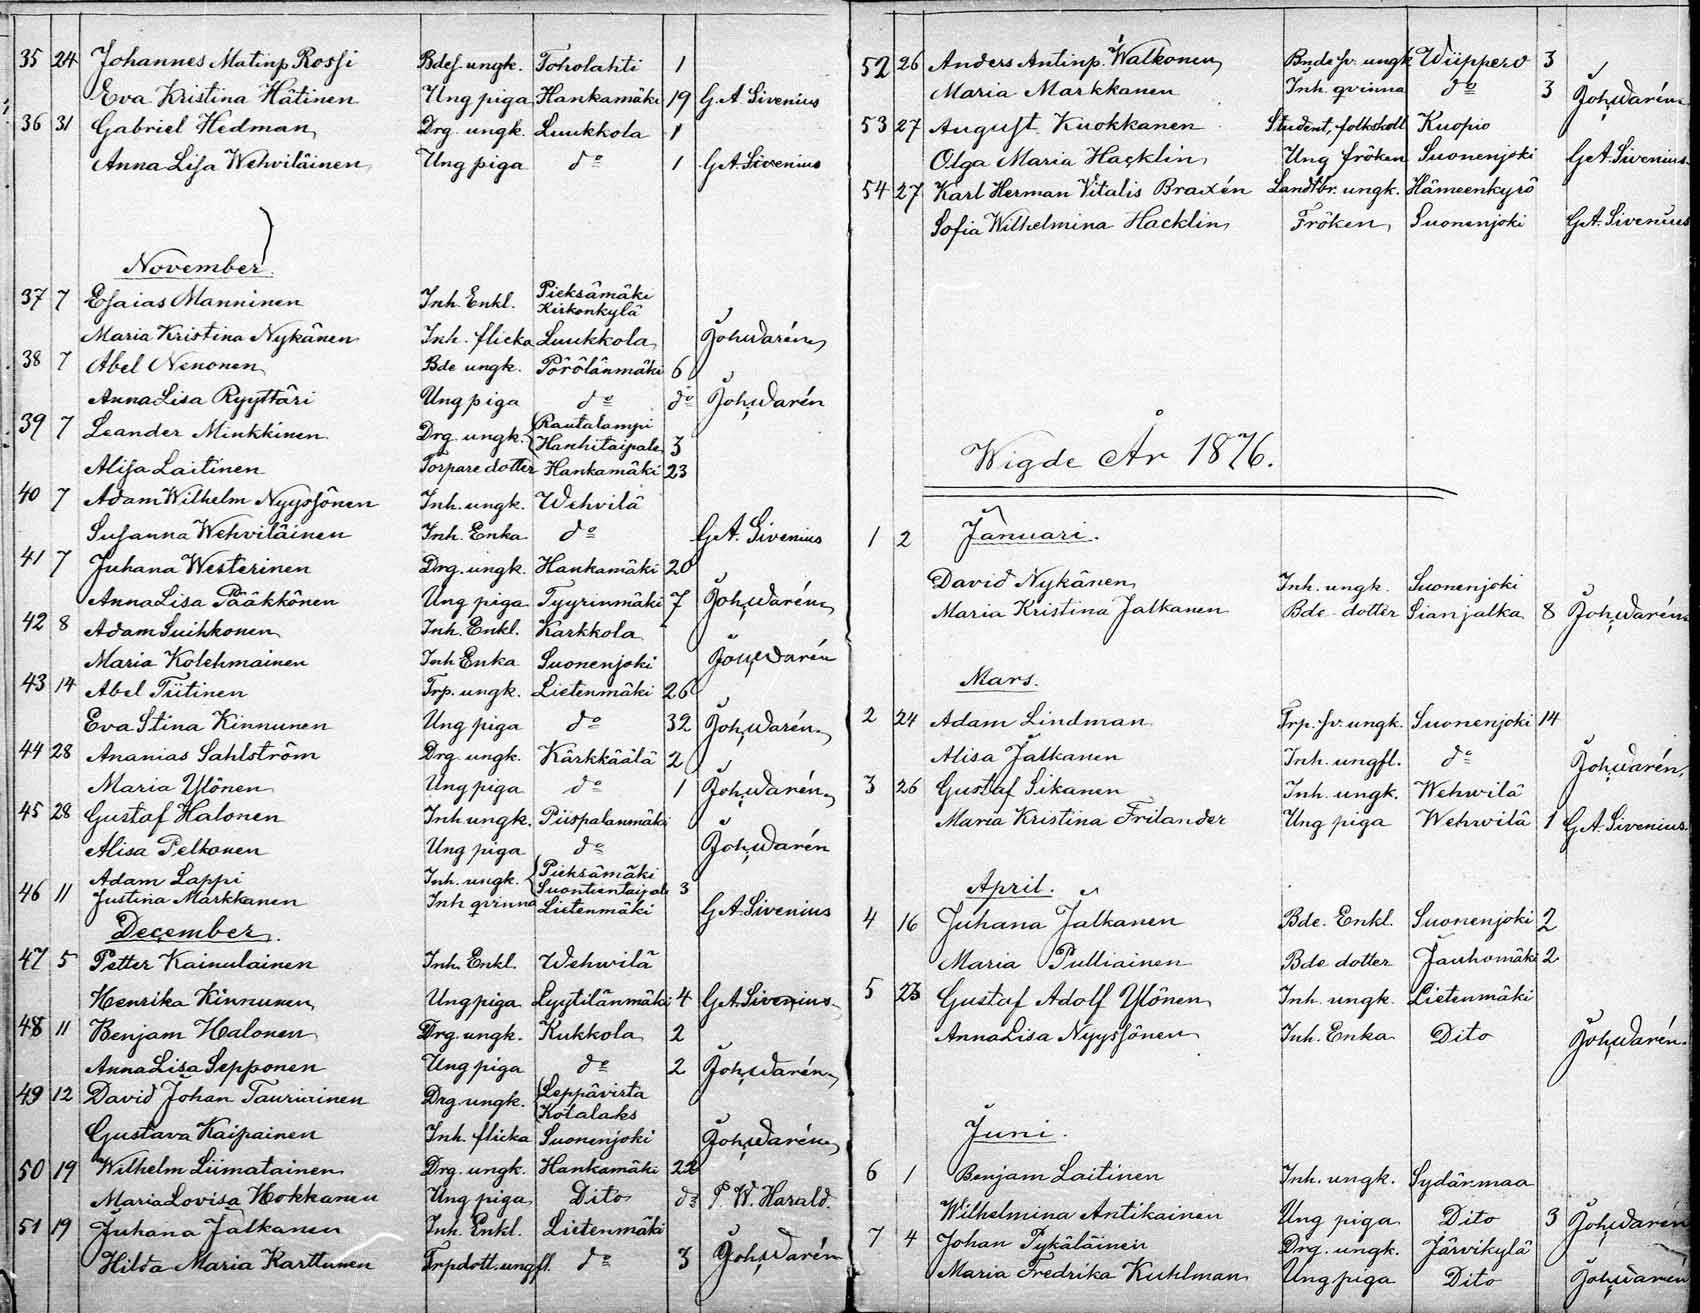 35 24 Johannes Matinp Rossi Bdes. ungk. Toholahti 1
Eva Kristina Hätinen Ung piga Hankamäki 19 G. A. Sivenius
36 31 Gabriel Hedman Drg. ungk. Luukkola 1
Anna Lisa Wehviläinen Ung piga do 1 G. A. Sivenius
November
37 7 Esaias Manninen Inh. Enkl. Pieksämäki Kirkonkylä
Maria Kristina Nykänen Inh. flicka Luukkola Joh. Warén
38 7 Abel Nenonen Bde ungk. Pörölänmäki 6
Anna Lisa Ryyttäri Ung piga do do Joh. Warén
39 7 Leander Minkkinen Drg. ungk. Rautalampi Hanhitaipale 3
Alisa Laitinen Torpare dotter Hankamäki 23
40 7 Adam Wilhelm Nyyssönen Inh. ungk. Wehvilä
Susanna Wehviläinen Inh. Enka do G. A. Sivenius
41 7 Juhana Westerinen Drg. ungk. Hankamäki 20
Anna Lisa Pääkkönen Ung piga Tyyrinmäki 7 Joh. Warén
42 8 Adam Suihkonen Inh. Enkl. Karkkola
Maria Kolehmainen Inh Enka Suonenjoki Joh. Warén
43 14 Abel Tiitinen Trp. ungk. Lietenmäki 26
Eva Stina Kinnunen Ung piga do 32 Joh. Warén
44 28 Ananias Sahlström Drg. ungk. Kärkkäälä 2
Maria Ylönen Ung piga do 1 Joh. Warén
45 28 Gustaf Halonen Inh ungk. Piispalanmäki
Alisa Pelkonen Ung piga do Joh. Warén
Adam Lappi Inh. ungk. Pieksämäki Suontientaipale 3
46 11 Justina Markkanen Inh qvinna Lietenmäki G. A. Sivenius
December
47 5 Petter Kainulainen Inh. Enkl. Wehwilä
Henrika Kinnunen Ung piga Lyytilänmäki 4 G. A. Sivenius
48 11 Benjam Halonen Drg. ungk. Kukkola 2
Anna Lisa Sepponen Ung piga do 2 Joh. Warén
49 12 David Johan Tauriainen Drg. ungk. Leppävirta Kotalaks
Gustava Kaipainen Inh. flicka Suonenjoki Joh. Warén
50 19 Wilhelm Liimatainen Drg. ungk. Hankamäki 22
Maria Lovisa Hokkanen Ung piga Dito do P. W. Harald.
51 19 Juhana Jalkanen Inh. Enkl. Lietenmäki
Hilda Maria Karttunen Trpdott. ungfl. do 3 Joh. Warén
52 26 Anders Antinp. Walkonen Bnde sv. ungk Wiippero 3
Maria Markkanen Inh. qvinna do 3 Joh. Warén
53 27 August Kuokkanen Student, folkskoll Kuopio
Olga Maria Hacklin Ung fröken Suonenjoki G. A. Sivenius
54 27 Karl Herman Vitalis Braxén Landtbr. ungk. Hämeenkyrö
Sofia Wilhelmina Hacklin Fröken Suonenjoki G. A. Sivenius
Wigde År 1876.
1 2 Januari.
David Nykänen Inh. ungk. Suonenjoki
Maria Kristina Jalkanen Bde dotter Sianjalka 8 Joh. Warén
Mars.
2 24 Adam Lindman Trp. sv. ungk. Suonenjoki 14
Alisa Jalkanen Inh. ungfl. do Joh. Warén
3 26 Gustaf Sikanen Inh. ungk. Wehwilä
Maria Kristina Frilander Ung piga Wehwilä 1 G. A. Sivenius
April.
4 16 Juhana Jalkanen Bde. Enkl. Suonenjoki 2
Maria Pulliainen Bde dotter Jauhomäki 2
5 23 Gustaf Adolf Ylönen Inh. ungk. Lietenmäki
Anna Lisa Nyyssönen Inh. Enka Dito Joh. Warén
Juni.
6 1 Benjam Laitinen Inh. ungk. Sydänmaa
Wilhelmina Antikainen Ung piga Dito 3 Joh. Warén
7 4 Johan Pykäläinen Drg. ungk. Järvikylä
Maria Fredrika Kuhlman Ung piga Dito Joh. Warén